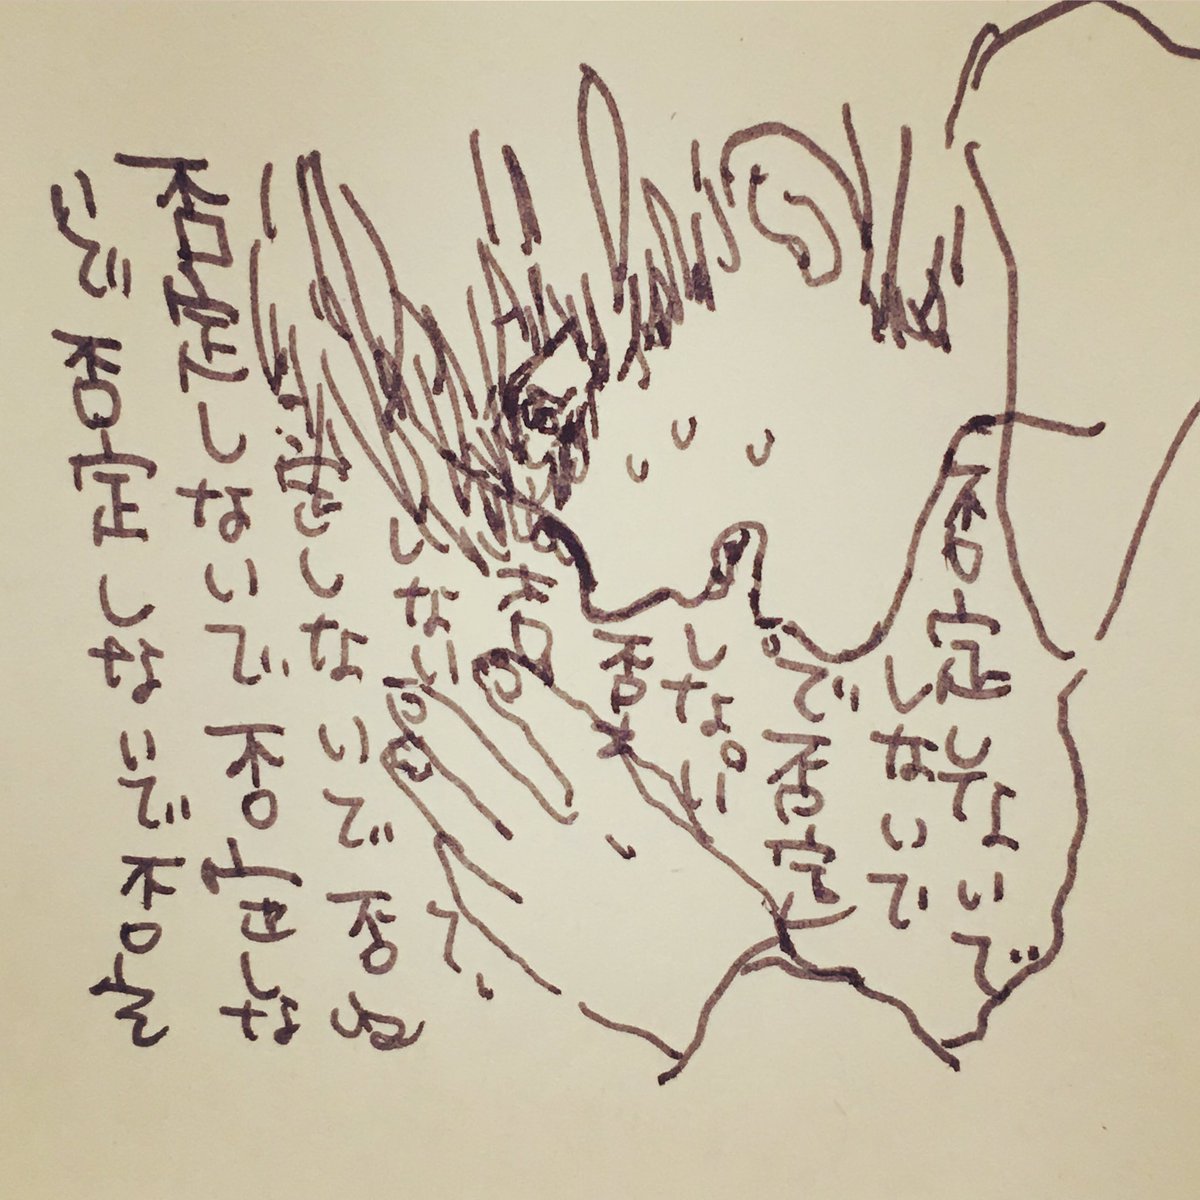 否定しないで
しないで
で否定
しない
否
否
しない
定しないで否定
否定しないで否定しな
いで否定しないで否定